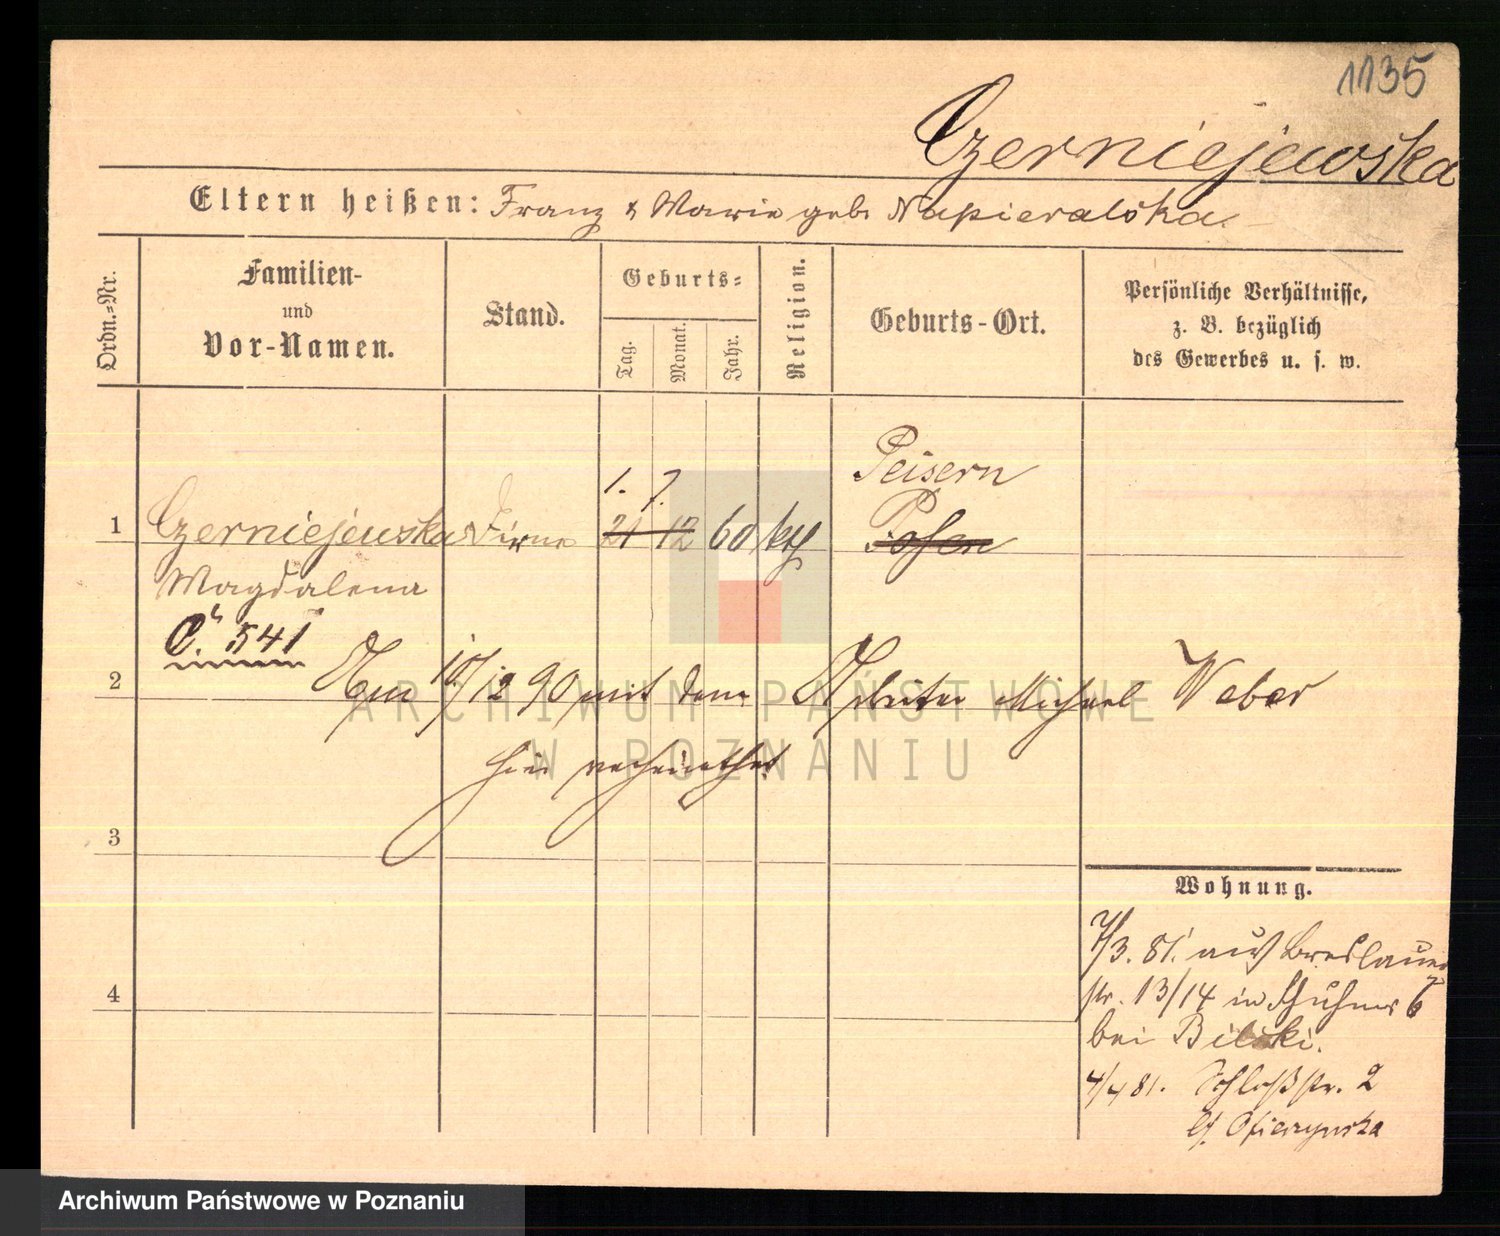 1135
Czerniejewska
Eltern heißen: Franz & Marie geb. Napieralska.
Ordn.=Nr.
Familien-
und
Vor-Namen.
Stand.
Geburts=
Tag.
Monat.
Jahr.
Religion.
Geburts-Ort.
Persönliche Verhältnisse,
z. B. bezüglich
des Gewerbes u. s. w.
1. 7. Peisern
1 Czerniejewska Dirne 21 12 60 kth Posen
Magdalena
C. 541
2 Am 10/12 90 mit dem Arbeiter Michael Weber
hier verheirathet
3
Wohnung.
7/3. 81. aus Breslauer
str. 13/14 in Schuhm. 6
4
bei Bilski.
4/4 81. Schloßstr. 2
ARCHIWUM PAŃSTWOWE
W POZNANIU
Archiwum Państwowe w Poznaniu